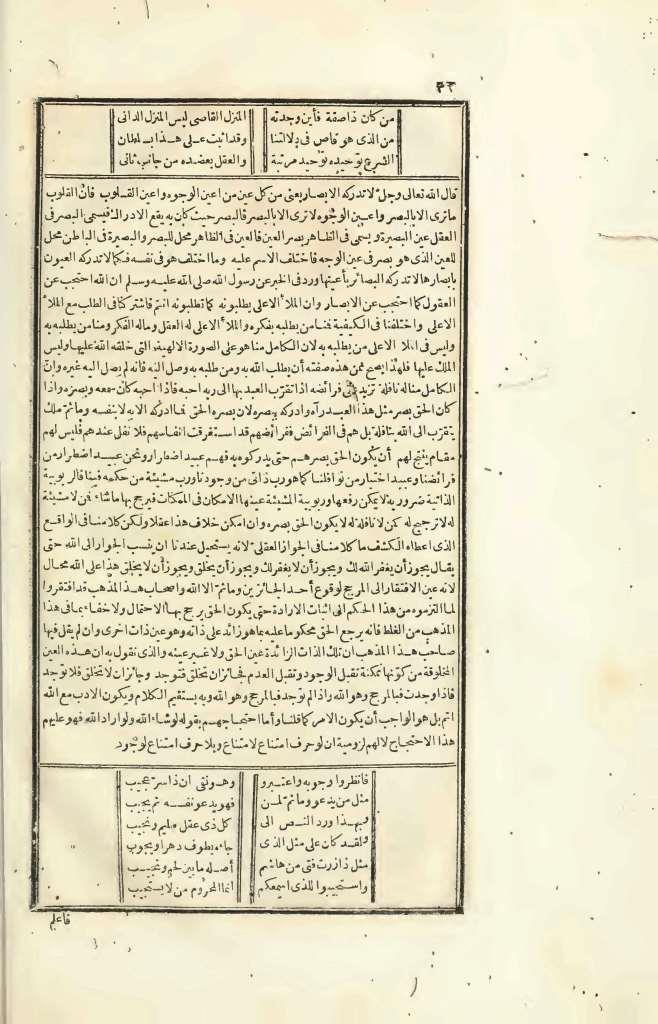 ٤٢
من كان ذا صفة فأين وجدته المنزل القاصى ليس المنزل الدانى
من الذى هو قاض فى دلالتنا وقد اثبت على هذا بسلطان
الشرع توحيده توحيد مرتبة والعقل يعضده من جانب ثانى
قال الله تعالى وجل لا تدركه الابصار يعنى من كل عين من اعين الوجوه واعين القلوب فان القلوب
ما ترى الا بالبصر واعين الوجوه لا ترى الا بالبصر فالبصر حيث كان به يقع الادراك فيسمى البصر فى
العقل عين البصيرة ويسمى فى الظاهر بصر العين فالعين فى الظاهر محل للبصر والبصيرة فى الباطن محل
للعين الذى هو بصر فى عين الوجه فاختلف الاسم عليه وما اختلف هو فى نفسه فكما لا تدركه العيون
بابصارها لا تدركه البصائر باعينها ورد فى الخبر عن رسول الله صلى الله عليه وسلم ان الله احتجب عن
العقول كما احتجب عن الابصار وان الملأ الاعلى يطلبونه كما تطلبونه انتم فاشتركنا فى الطلب مع الملأ
الاعلى واختلفنا فى الكيفية فمنا من يطلبه بفكره والملأ الاعلى له العقل وماله الفكر ومنا من يطلبه به
وليس فى الملا الاعلى من يطلبه به لان الكامل منا هو على الصورة الالهية التى خلقه الله عليها وليس
الملك عليها فلهذا يصح ممن هذه صفته أن يطلب الله به ومن طلبه به وصل اليه فانه لم يصل اليه غيره وان
الكامل منا له نافلة تزيد على فرائضه اذا تقرب العبد بها الى ربه احبه فاذا احبه كان سمعه وبصره واذا
كان الحق بصر مثل هذا العبد رآه وادركه ببصره لان بصره الحق فما ادركه الا به لا بنفسه وما ثم ملك
يتقرب الى الله بنافلة بل هم فى الفرائض ففرائضهم قد استغرقت انفاسهم فلا نفل عندهم فليس لهم
مقام ينتج لهم أن يكون الحق بصرهم حتى يدركوه به فهم عبيد اضطرار ونحن عبيد اضطرار من
فرائضنا وعبيد اختيار من نوافلنا كما هو رب ذاتى من وجودنا ورب مشيئة من حكمه فينا فالربوبية
الذاتية ضرورية لا يمكن رفعها وربوبية المشيئة عينها الامكان فى الممكنات فيرجح بها ماشاء فمن لا مشيئة
له لا ترجيح له كمن لا نافلة له لا يكون الحق بصره وان امكن خلاف هذا عقلا ولكن كلامنا فى الواقع
الذى اعطاه الكشف ما كلامنا فى الجواز العقلى لانه يستحيل عندنا ان ينسب الجواز الى الله حتى
يقال يجوز أن يغفر الله لك ويجوز أن لا يغفر لك ويجوز أن يخلق ويجوز أن لا يخلق هذا على الله محال
لانه عين الافتقار الى المرجح لوقوع أحد الجائزين وما ثم الا الله واصحاب هذا المذهب قد افتقروا
لما التزموه من هذا الحكم الى اثبات الارادة حتى يكون الحق يرجح بها الاحتمال ولا خفاء بما فى هذا
المذهب من الغلط فانه يرجع الحق محكوما عليه بما هو زائد على ذاته وهو عين ذات اخرى وان لم يقل فيها
صاحب هذا المذهب ان تلك الذات الزائدة عين الحق ولا غير عينه والذى نقول به ان هذه العين
المخلوقة من كونها ممكنة تقبل الوجود وتقبل العدم فجائز ان تخلق فتوجد وجائز ان لا تخلق فلا توجد
فاذا وجدت فبالمرجح وهو الله واذا لم توجد فبالمرجح وهو الله وبه يستقيم الكلام ويكون الادب مع الله
اتم بل هو الواجب أن يكون الامر كما قلنا وأما احتجاجهم بقوله لو شاء الله ولو اراد الله فهو عليهم
هذا الاحتجاج لا لهم لزومية ان لو حرف امتناع لامتناع وبلا حرف امتناع لوجود
فانظروا وجوبه واعتبروا وهونتى ان ذا سر عجيب
مثل من يدعو وما ثم لمن فهو يدعو نفسه ثم يجيب
وبهذا ورد النص الى كل ذى عقل سليم ونجيب
ولقد كان على مثل الذى جاءه يطوف دهرا ويجوب
مثل ذا زرت فتى من هاشم أصله ما بين لخم وتجيب
واستجيبوا للذى اسمعكم انما المحروم من لا يستجيب
فاعلم